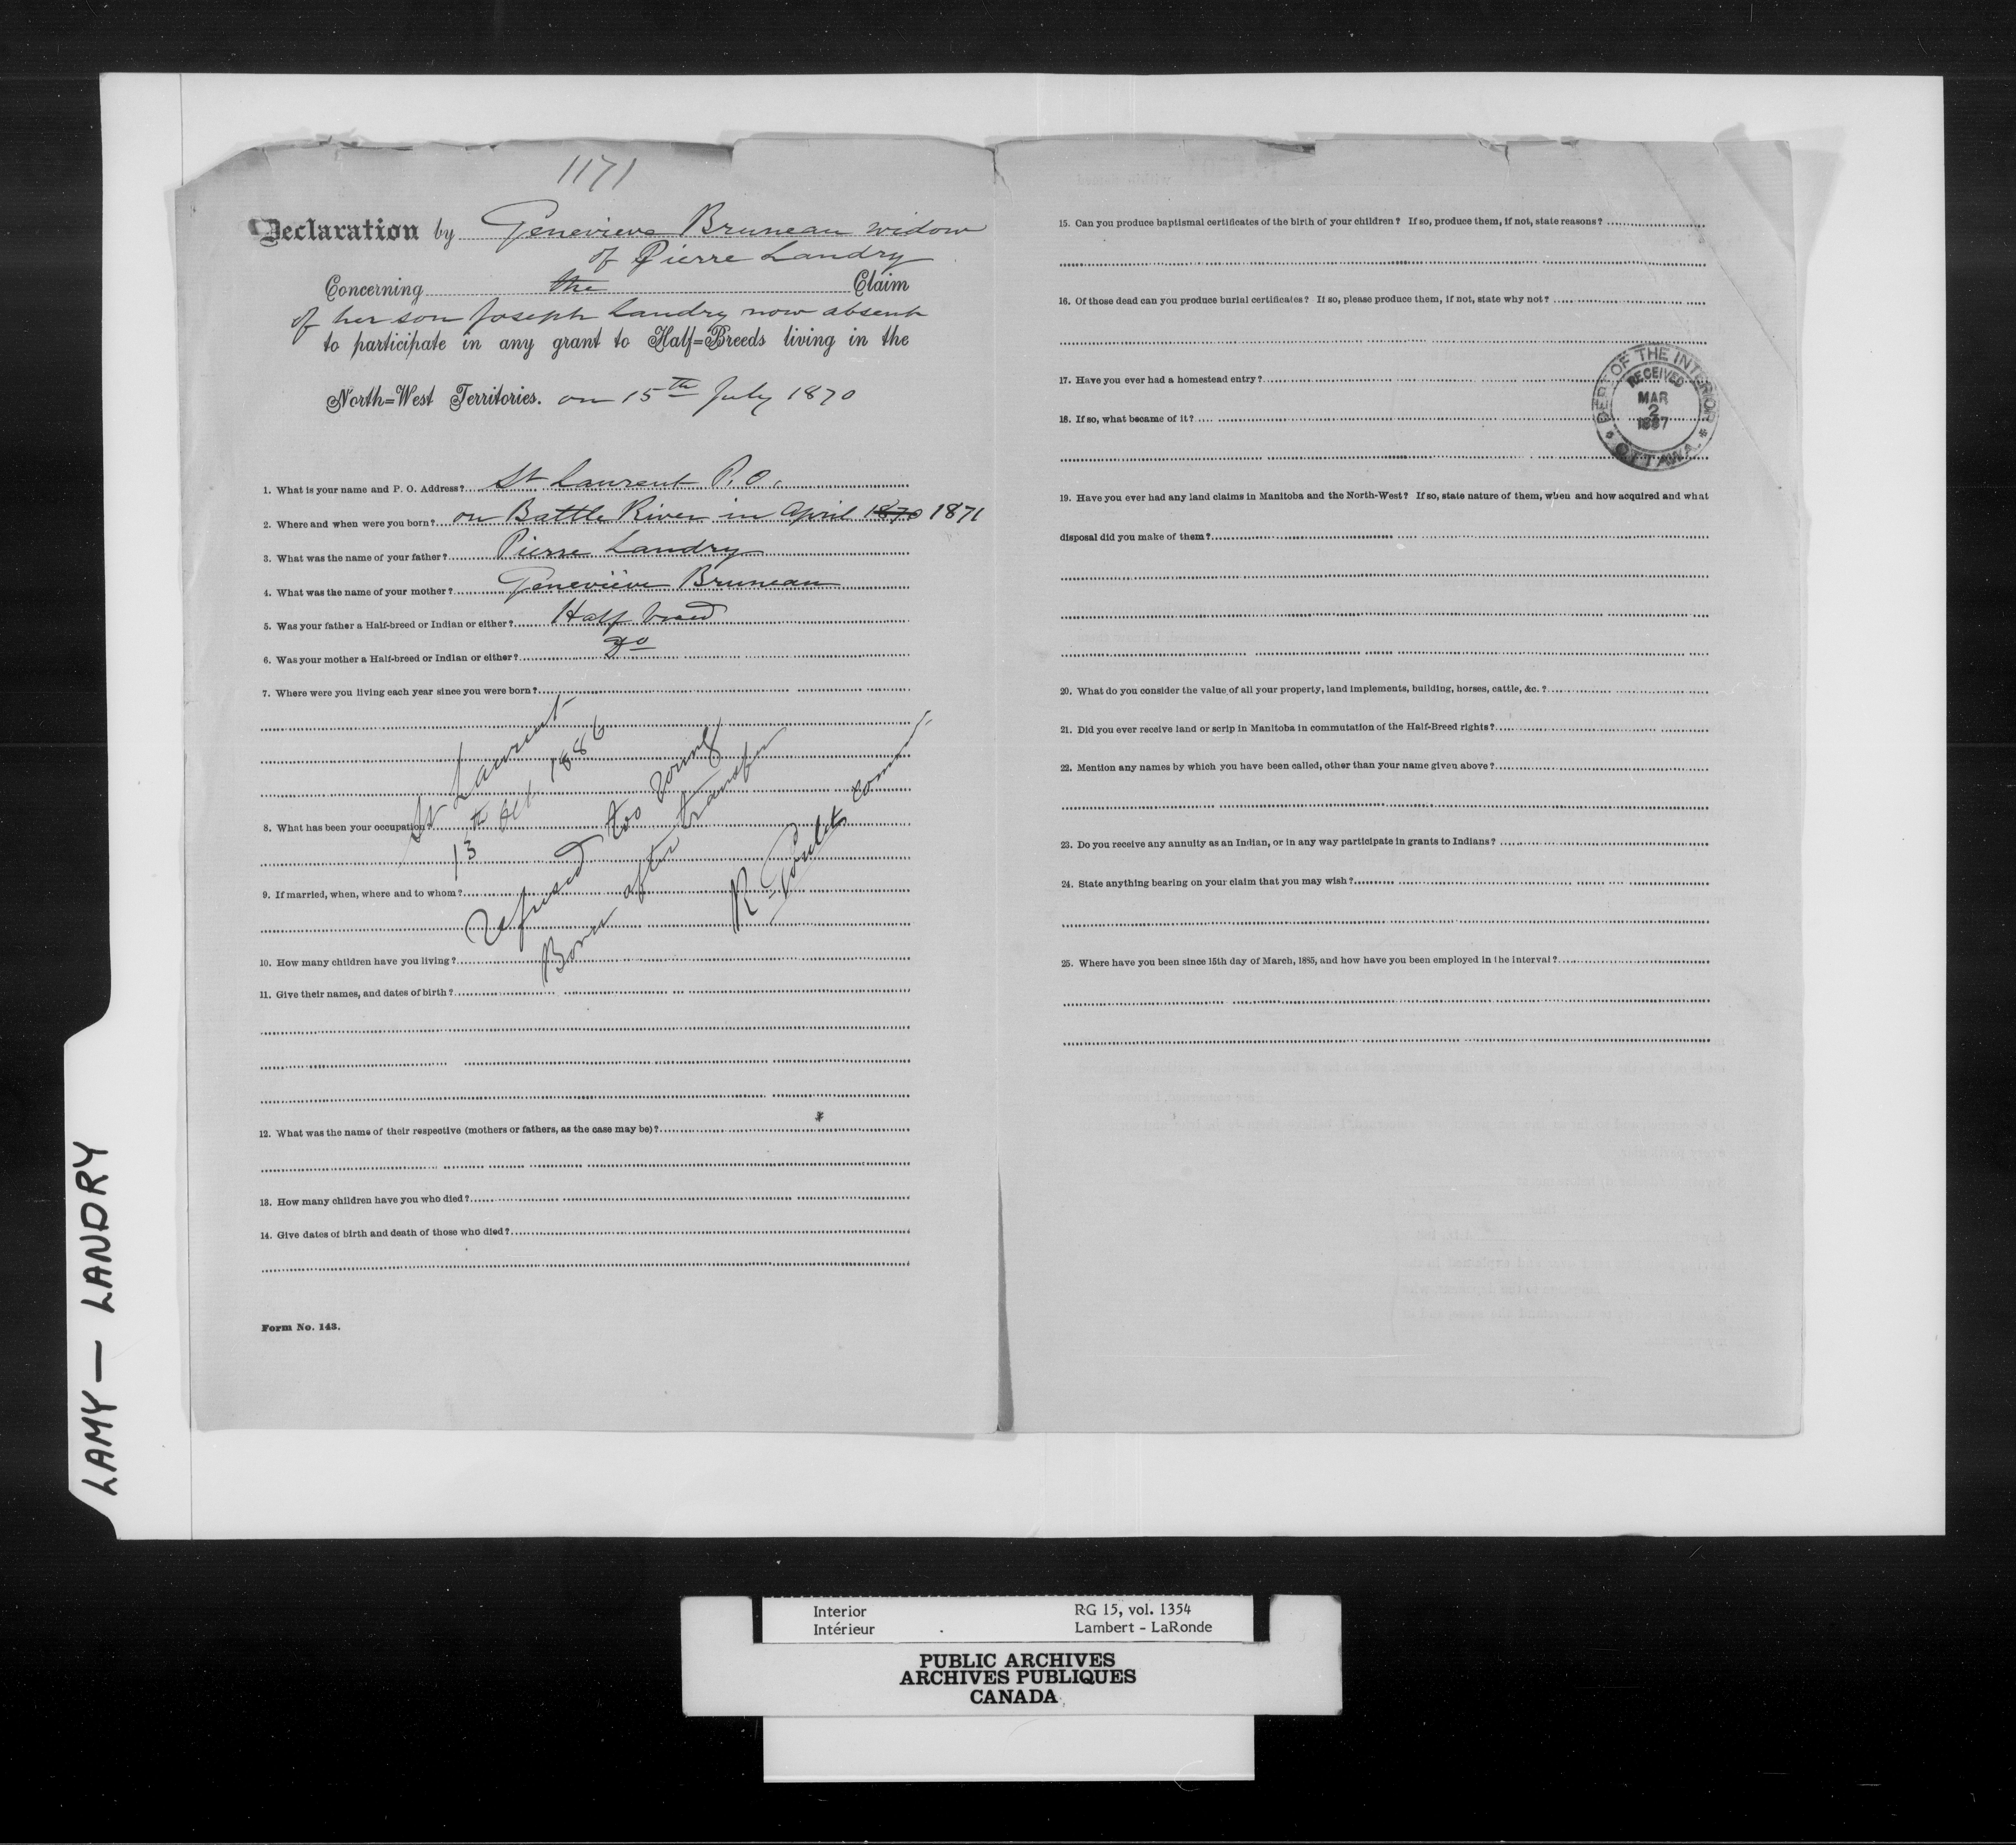 1171
Declaration by Genevieve Bruneau widow
of Pierre Landry
Concerning the Claim
of her son Joseph Landry now absent
to participate in any grant to Half=Breeds living in the
North=West Territories. on 15th July 1870
1. What is your name and P. O. Address? St Laurent P. O.
2. Where and when were you born? on Battle River in April 1870 1871
3. What was the name of your father? Pierre Landry
4. What was the name of your mother? Geneviève Bruneau
5. Was your father a Half-breed or Indian or either? Half breed
6. Was your mother a Half-breed or Indian or either? Do
7. Where were you living each year since you were born?
St Laurent
13th 1886
8. What has been your occupation?
refused too young
Born after transfer
R Goulet
9. If married, when, where and to whom?
10. How many children have you living?
11. Give their names, and dates of birth?
12. What was the name of their respective (mothers or fathers, as the case may be)?
13. How many children have you who died?
14. Give dates of birth and death of those who died?
Form No. 143.
15. Can you produce baptismal certificates of the birth of your children? If so, produce them, if not, state reasons?
16. Of those dead can you produce burial certificates? If so, please produce them, if not, state why not?
17. Have you ever had a homestead entry?
18. If so, what became of it?
DEPT OF THE INTERIOR
RECEIVED
MAR
2
1887
OTTAWA
19. Have you ever had any land claims in Manitoba and the North-West? If so, state nature of them, when and how acquired and what
disposal did you make of them?
20. What do you consider the value of all your property, land implements, building, horses, cattle, &c.?
21. Did you ever receive land or scrip in Manitoba in commutation of the Half-Breed rights?
22. Mention any names by which you have been called, other than your name given above?
23. Do you receive any annuity as an Indian, or in any way participate in grants to Indians?
24. State anything bearing on your claim that you may wish?
25. Where have you been since 15th day of March, 1885, and how have you been employed in the interval?
LAMY — LANDRY
Interior
Intérieur
RG 15, vol. 1354
Lambert - LaRonde
PUBLIC ARCHIVES
ARCHIVES PUBLIQUES
CANADA